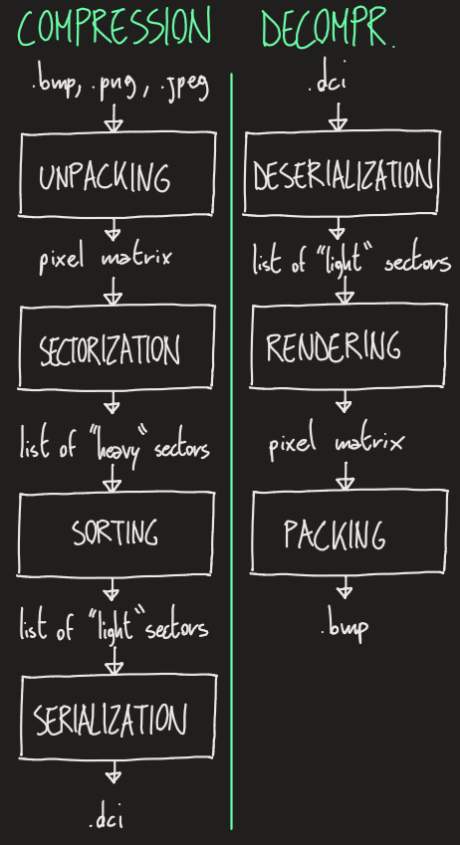 COMPRESSION
.bmp, .png, .jpeg
UNPACKING
pixel matrix
SECTORIZATION
list of "heavy" sectors
SORTING
list of "light" sectors
SERIALIZATION
.dci
DECOMPR.
.dci
DESERIALIZATION
list of "light" sectors
RENDERING
pixel matrix
PACKING
.bmp